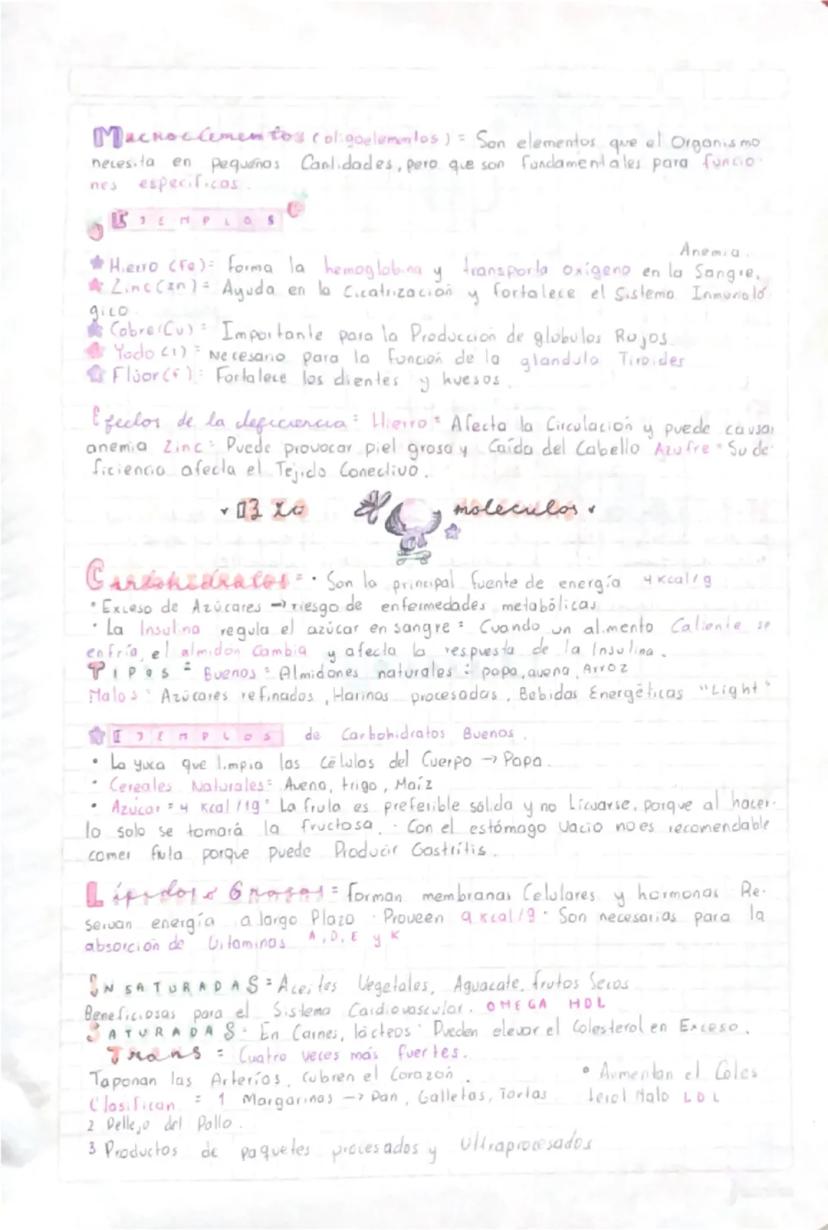 Macroelementos (oligoelementos) = Son elementos que el Organismo
necesita en pequeños Cantidades, pero que son fundamentales para funcio
nes especificas.
EJEMPLOS
Anemia.
Hierro (Fe) = forma la hemoglobina y transporta oxígeno en la Sangre.
Zinc (zn) = Ayuda en la Cicatrización y fortalece el Sistema Inmunoló
gico
Cobre (Cu) = Importante para la Producción de globulos Rojos
Yodo (I) = Necesario para la función de la glandula Tiroides
Flúor (F) = Fortalece los dientes y huesos.
Efectos de la deficiencia = Hierro = Afecta la Circulación y puede causar
anemia Zinc = Puede provocar piel grosa y Caída del Cabello Azufre = Su de
ficiencia afecta el Tejido Conectivo.
moleculas
Carbohidratos = • Son la principal fuente de energía 4 Kcal/g
• Exceso de Azúcares → riesgo de enfermedades metabólicas
• La Insulina regula el azúcar en sangre = Cuando un alimento Caliente se
enfría, el almidon Cambia y afecta la respuesta de la Insulina.
TIPOS = Buenos = Almidones naturales : papa, avena, Arroz
Malos : Azúcares refinados, Harinas procesadas, Bebidas Energéticas "Light"
EJEMPLOS de Carbohidratos Buenos.
• La yuca que limpia las Células del Cuerpo → Papa.
• Cereales Naturales = Avena, trigo, Maíz
• Azúcar = 4 Kcal / 1g • La fruta es preferible solida y no Licuarse, porque al hacer-
lo solo se tomará la fructosa. • Con el estómago vacio no es recomendable
comer fruta porque puede Producir Gastritis.
Lípidos o Grasas = forman membranas Celulares y hormonas Re-
servan energía a largo Plazo • Proveen 9 Kcal/g • Son necesarias para la
absorción de Vitaminas A, D, E y K
INSATURADAS = Aceites Vegetales, Aguacate, frutos Secos
Beneficiosas para el Sistema Cardiovascular. OMEGA HDL
SATURADAS • En Carnes, lácteos • Pueden elevar el Colesterol en Exceso.
Trans = Cuatro veces más fuertes.
Taponan las Arterias, Cubren el Corazón. • Aumentan el Coles
Clasifican = 1 Margarinas → Pan, Galletas, Tortas terol Malo LDL
2 Pellejo del Pollo.
3 Productos de paquetes procesados y Ultraprocesados